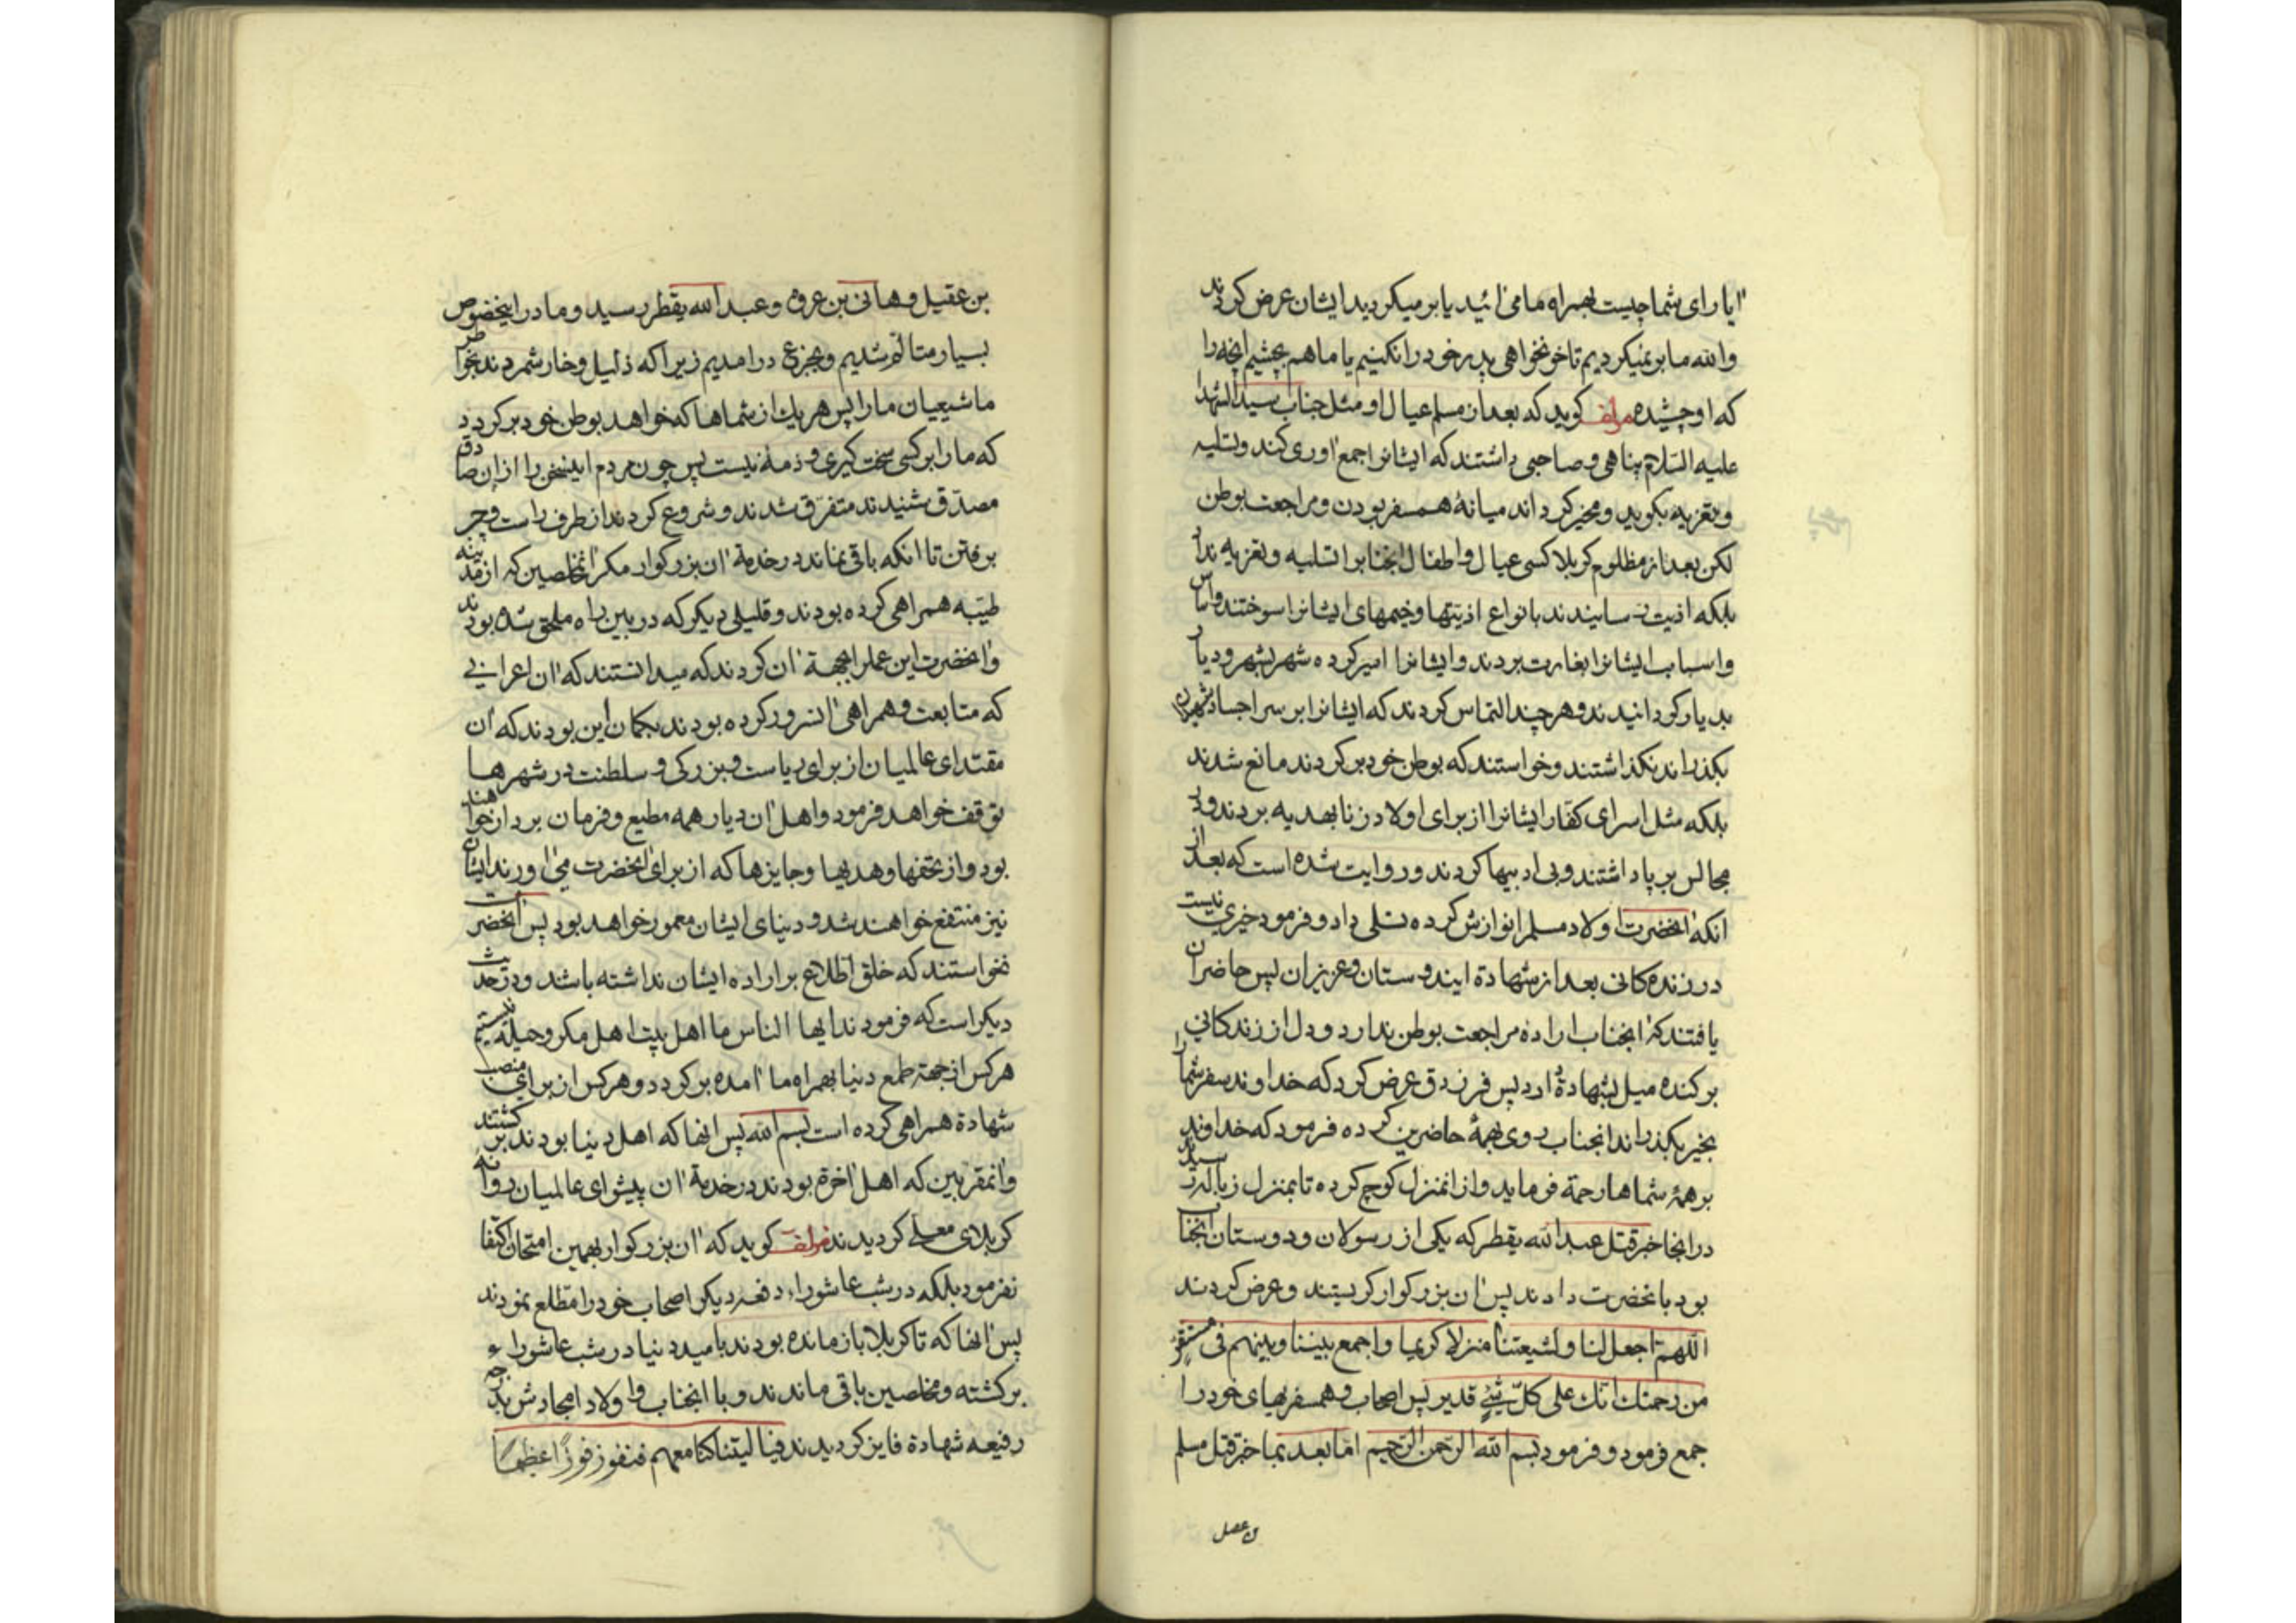 ایا رای شما چیست بهمراه ما می ائید یا بر میکردید ایشان عرض کردند
والله ما بر نمیکردیم تا خونخواهی پدر خود را نکنیم یا ما هم بچشیم انچه را
که او چشیده مولف کوید که بعد از مسلم عیال او مثل جناب سید الشهدا
علیه السلام پناهی و صاحبی داشتند که ایشانرا جمع اوری کند و تسلیه
و تعزیه بکوید و مخیر کرداند میانهٔ همسفر بودن و مراجعت بوطن
لکن بعد از مظلوم کربلا کسی عیال و اطفال انجنابرا تسلیه و تعزیه نداد
بلکه اذیت رسانیدند بانواع اذیتها و خیمهای ایشانرا سوختند واساس
واسباب ایشانرا بغارت بردند و ایشانرا اسیر کرده شهر بشهر و دیار
بدیار کردانیدند و هر چند التماس کردند که ایشانرا بر سر اجساد شهیدان
بکذرانند نکذاشتند و خواستند که بوطن خود بر کردند مانع شدند
بلکه مثل اسرای کفار ایشانرا از برای اولاد زنا بهدیه بردند و در
مجالس بر پا داشتند و بی ادبیها کردند و روایت شده است که بعد از
انکه انحضرت اولاد مسلم را نوازش کرده تسلی داد و فرمود خیری نیست
در زنده کانی بعد از شهادة ایندوستان و عزیزان پس حاضران
یافتند که انجناب اراده مراجعت بوطن ندارد و دل از زندکانی
بر کنده میل بشهادة دارد پس فرزدق عرض کرد که خداوند سفر شما را
بخیر بکذراند انجناب روی بهمهٔ حاضرین کرده فرمود که خداوند
بر همهٔ شماها رحمة فرماید و از انمنزل کوچ کرده تا بمنزل زباله رسیدند
در انجا خبر قتل عبدالله یقطر که یکی از رسولان و دوستان انجناب
بود بانحضرت دادند پس ان بزرکوار کریستند و عرض کردند
اللهم اجعل لنا ولشیعتنا منزلا کریما واجمع بیننا وبینهم فی مستقر
من رحمتك انك علی کل شیء قدیر پس اصحاب و همسفریهای خود را
جمع فرمود و فرمود بسم الله الرحمن الرحیم اما بعد بما خبر قتل مسلم
بن عقیل و هانی بن عروه و عبدالله یقطر رسید و ما در اینخصوص
بسیار متالم شدیم و بجزع در امدیم زیرا که ذلیل و خار شمردند بخواطر
ما شیعیان ما را پس هر یك از شماها که خواهد بوطن خود بر کردد
که ما را بر کسی سخت کیری و ذمه نیست پس چون مردم اینسخن را از ان صادق
مصدق شنیدند متفرق شدند و شروع کردند از طرف راست و چپ
برفتن تا انکه باقی نماند در خدمة ان بزرکوار مکر انمخلصین که از مدینه
طیبه همراهی کرده بودند و قلیلی دیکر که در بین راه ملحق شده بودند
و انحضرت این عمل را بجهة ان کردند که میدانستند که ان اعرابی
که متابعت و همراهی انسرور کرده بودند بکمان این بودند که ان
مقتدای عالمیان از برای ریاست و بزرکی و سلطنت در شهرها
توقف خواهد فرمود و اهل ان دیار همه مطیع و فرمان بردار خواهند
بود و از تحفها و هدیها و جایزها که از برای انحضرت می اورند ایشان
نیز منتفع خواهند شد و دنیای ایشان معمور خواهد بود پس انحضرت
نخواستند که خلق اطلاع بر اراده ایشان نداشته باشد و در حدیث
دیکر است که فرمودند ایها الناس ما اهل بیت اهل مکر و حیله نیستیم
هر کس از جهة طمع دنیا بهمراه ما امده بر کردد و هر کس از برای منصب
شهادة همراهی کرده است بسم الله پس انها که اهل دنیا بودند بر کشتند
و انمقربین که اهل اخرة بودند در خدمة ان پیشوای عالمیان روانه
کربلای معلی کردیدند مولف کوید که ان بزرکوار بهمین امتحان اکتفا
نفرمود بلکه در شب عاشوراء دفعه دیکر اصحاب خود را مطلع نمودند
پس انها که تا کربلا باز مانده بودند بامید دنیا در شب عاشوراء
بر کشته و مخلصین باقی ماندند و با انجناب و اولاد امجادش بدرجه
رفیعه شهادة فایز کردیدند فیا لیتنا کنا معهم فنفوز فوزا عظیما